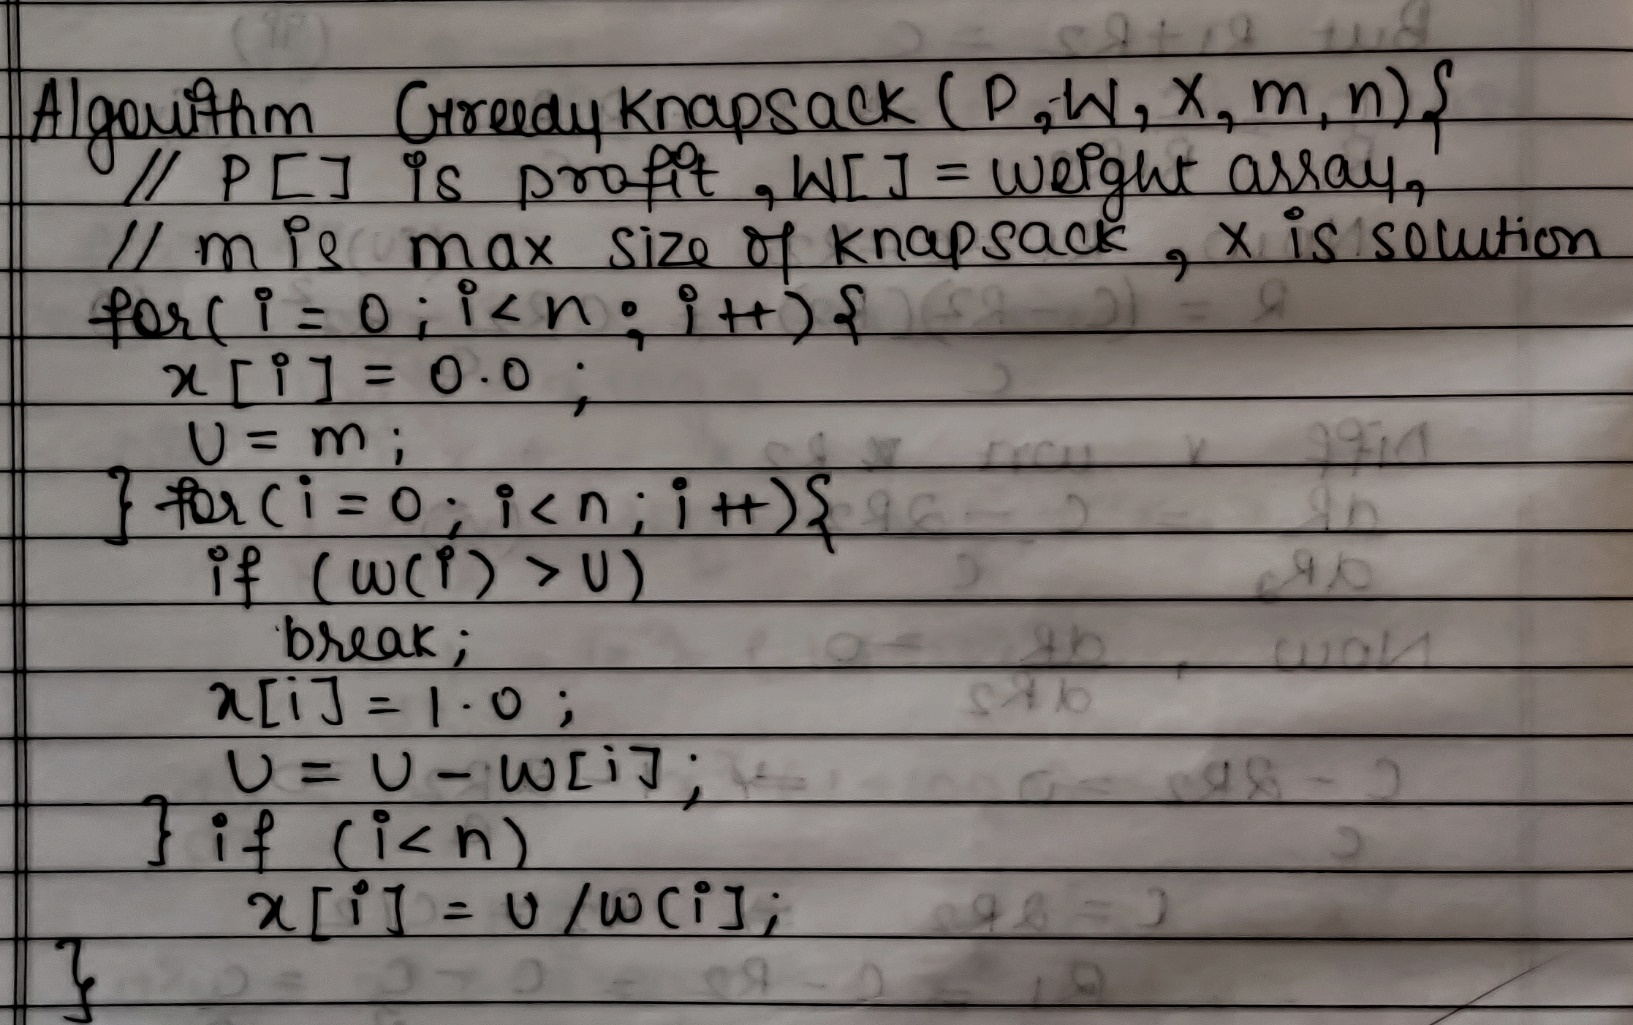 Algorithm GreedyKnapsack (P, W, X, m, n){
// P[] is profit, W[] = weight array,
// m is max size of knapsack, X is solution
for(i = 0; i<n; i++){
x[i] = 0.0;
U = m;
} for(i = 0; i<n; i++){
if (w(i) > U)
break;
x[i] = 1.0;
U = U - W[i];
} if (i<n)
x[i] = U/w(i];
}